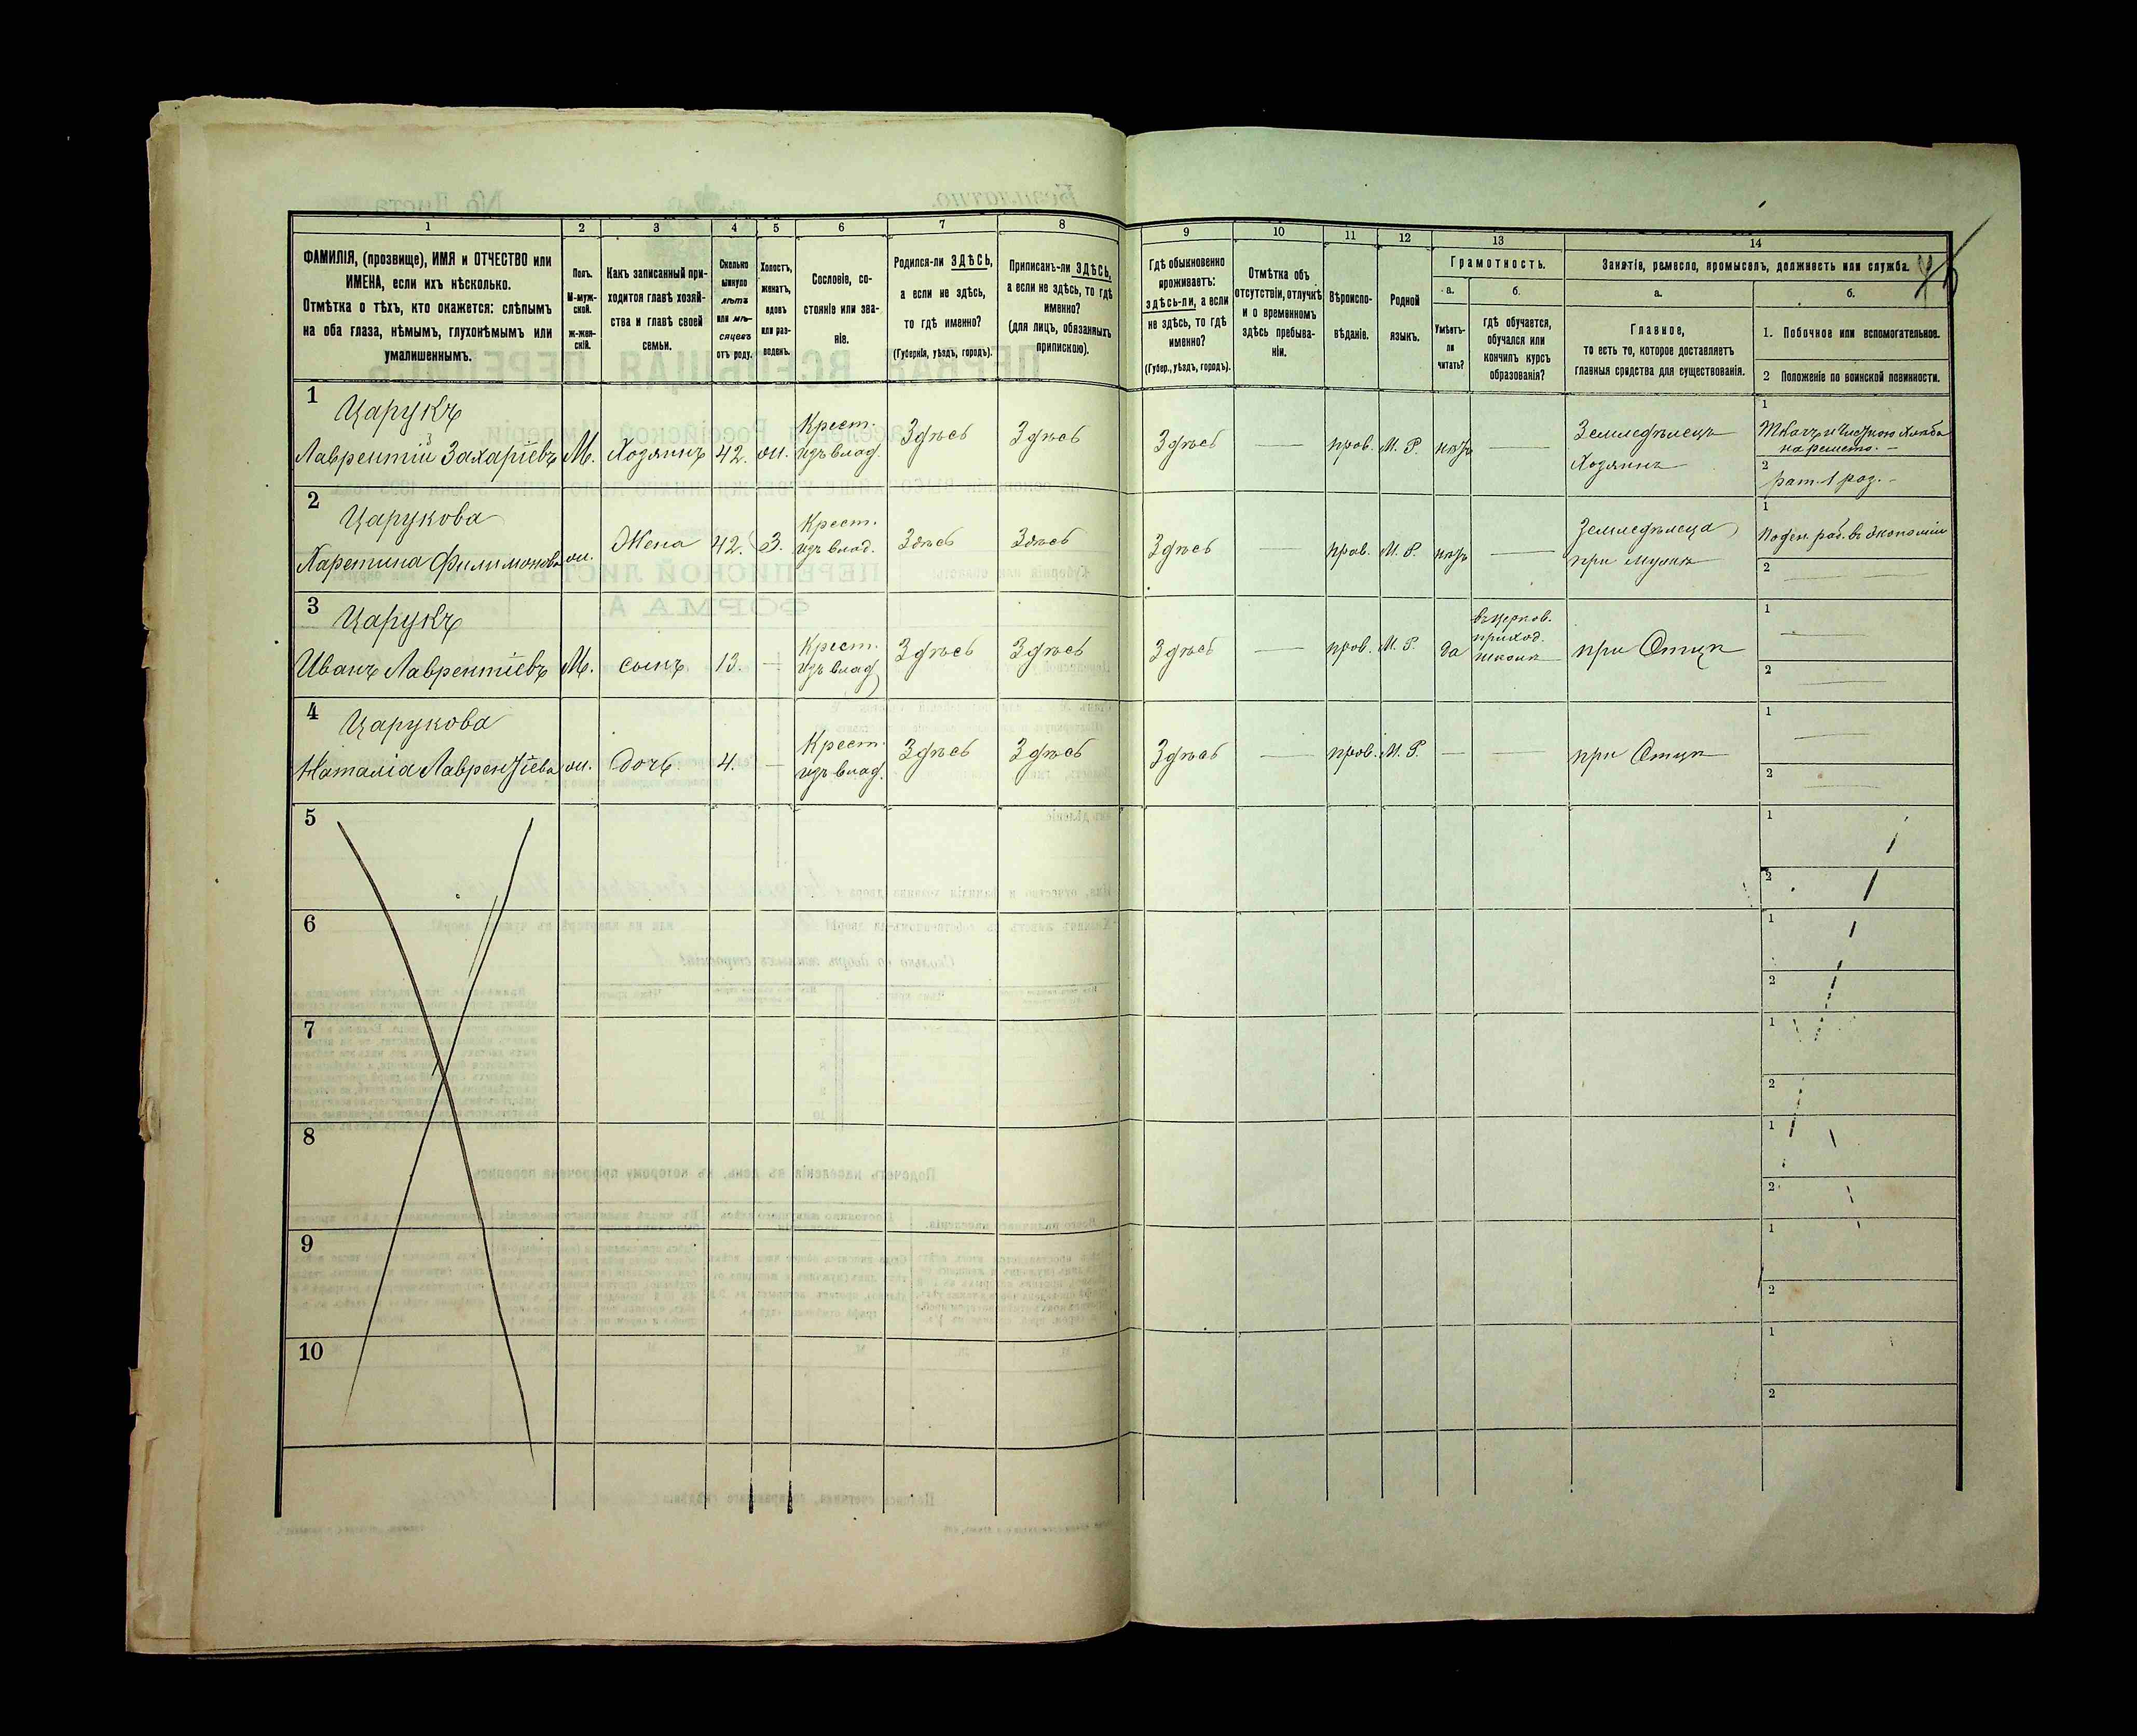 1 2 3 4 5 6 7 8 9 10 11 12 13 14
ФАМИЛІЯ, (прозвище), ИМЯ и ОТЧЕСТВО или
ИМЕНА, если ихъ нѣсколько.
Отмѣтка о тѣхъ, кто окажется: слѣпымъ
на оба глаза, нѣмымъ, глухонѣмымъ или
умалишеннымъ.
Полъ.
М-муж-
ской.
ж-жен-
скій.
Какъ записанный при-
ходится главѣ хозяй-
ства и главѣ своей
семьи.
Сколько
минуло
лѣтъ
или мѣ-
сяцевъ
отъ роду.
Холостъ,
женатъ,
вдовъ
или раз-
веденъ.
Сословіе, со-
стояніе или зва-
ніе.
Родился-ли ЗДѢСЬ,
а если не здѣсь,
то гдѣ именно?
(Губернія, уѣздъ, городъ).
Приписанъ-ли ЗДѢСЬ,
а если не здѣсь, то гдѣ
именно?
(для лицъ, обязанныхъ
припискою).
Гдѣ обыкновенно
проживаетъ:
здѣсь-ли, а если
не здѣсь, то гдѣ
именно?
(Губер., уѣздъ, городъ).
Отмѣтка объ
отсутствіи, отлучкѣ
и о временномъ
здѣсь пребыва-
ніи.
Вѣроиспо-
вѣданіе.
Родной
языкъ.
Грамотность.
а.
Умѣетъ-
ли
читать?
б.
гдѣ обучается,
обучался или
кончилъ курсъ
образованія?
Занятіе, ремесло, промыселъ, должность или служба.
а.
Главное,
то есть то, которое доставляетъ
главныя средства для существованія.
б.
1. Побочное или вспомогательное.
2 Положеніе по воинской повинности.
1
Царукъ
Лаврентій Захаріевъ М. Хозяинъ 42. ж.
Крест.
изъ влад.
Здѣсь Здѣсь Здѣсь — пров. М. Р. нѣтъ —
Земледѣлецъ
Хозяинъ
1
на решето. —
2
рат. 1 раз. —
2
Царукова
Харетина Филимонова ж. Жена 42. З.
Крест.
изъ влад.
Здѣсь Здѣсь Здѣсь — прав. М. Р. нѣтъ —
Земледѣлеца
при мужѣ
1
Поден. раб. въ Экономіи
2
3
Царукъ
Иванъ Лаврентіевъ М. сынъ 13. —
Крест.
изъ влад.
Здѣсь Здѣсь Здѣсь пров. М. Р. да
въ церков.
приход.
школѣ
при Отцѣ
1
2
4
Царукова
Наталія Лаврентіева ж. дочь 4. —
Крест.
изъ влад.
Здѣсь Здѣсь Здѣсь — пров. М. Р. — —
при Отцѣ
1
2
5
1
2
6
1
2
7
1
2
8
1
2
9
1
2
10
1
2